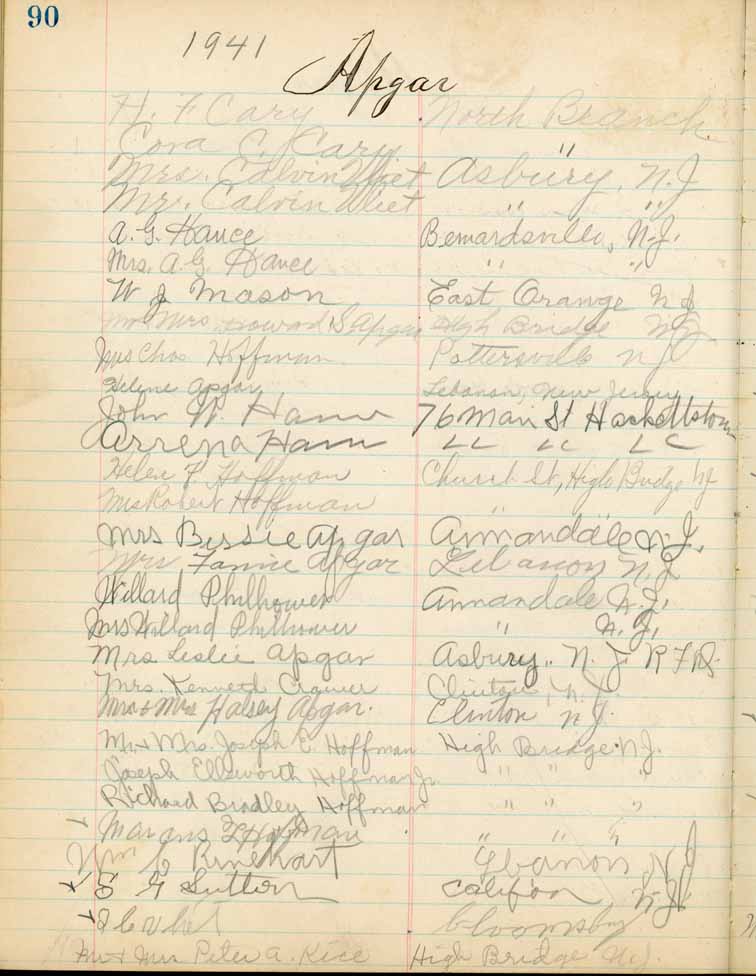 90
1941
Apgar
H. F Cary North Branch.
Cora C. Cary "
Mrs. Calvin Wiet Asbury, N.J
Mr. Calvin Wiet " "
A. G. Hance Bernardsville, N.J.
Mrs. A. G. Hance " "
W J Mason East Orange N J
Mr Mrs. Howard S. Apgar High Bridge NJ
Mrs Chas Hoffman Pottersville NJ
Helene Apgar, Lebanon, New Jersey
John W. Hann 76 Main St Hackettstown
Arrena Hann LL LL LC
Helen F Hoffman Church St, High Bridge NJ
Mrs Robert Hoffman " "
Mrs Bessie Apgar Annandale N.J.
Mrs Fannie Apgar Lebanon N.J
Willard Philhower Annandale N.J.
Mrs Willard Philhower " N.J.
Mrs Leslie Apgar Asbury. N. J. R F D.
Mrs. Kenneth Clinton, N. J.
Mr + Mrs Halsey Apgar. Clinton N J.
Mr + Mrs. Joseph E Hoffman High Bridge N.J.
Joseph Ellsworth Hoffman Jr " " "
Richard Bradley Hoffman " " "
Hoffman " " "
Wm C Rinehart Lebanon, N J
S G Sutton Califon, N.J.
Bloomsbury
Mr + Mrs Peter A. Rice High Bridge N.J.